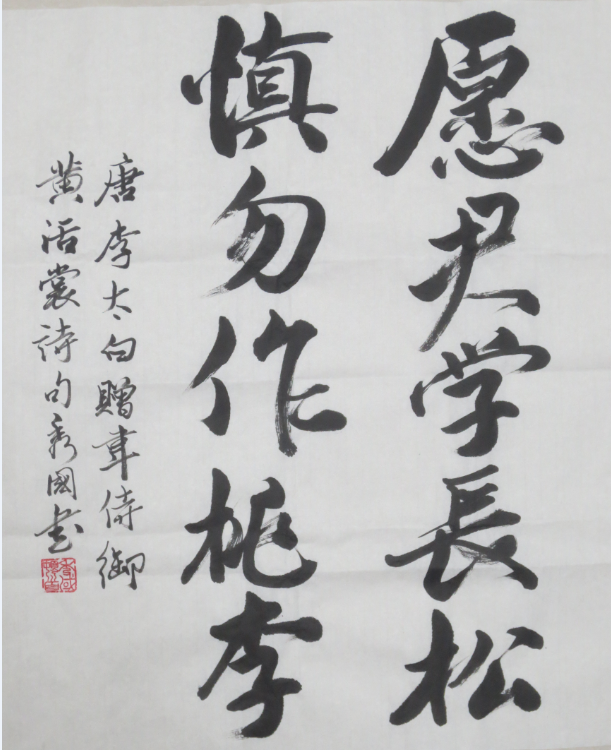 愿君学長松
慎勿作桃李
唐李太白贈韋侍御
黄活裳詩句秀國书